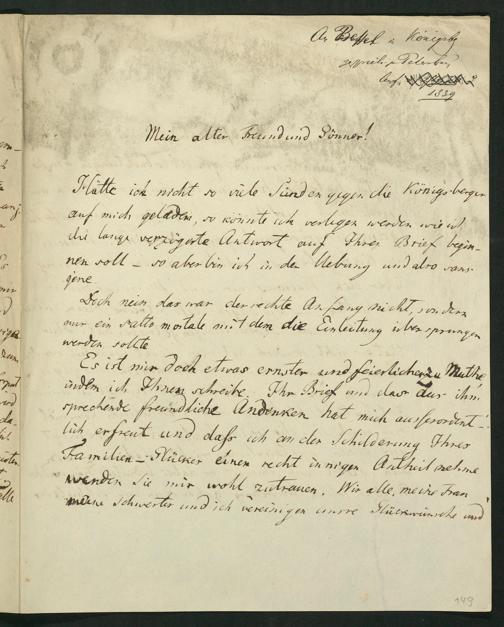 An Bessel in Königsbg
1839
Mein alter Freund und Gönner!
Hätte ich nicht so viele Sünden gegen die Königsberger
auf mich geladen, so könnte ich verlegen werden wie ich
die lange verzögerte Antwort auf Ihren Brief begin-
nen soll – so aber bin ich in der Uebung und also sans
gene
Doch nein, das war der rechte Anfang nicht, sondern
nur ein salto mortale mit dem die Einleitung übersprungen
werden sollte
Es ist mir doch etwas ernster und feierlicher zu Muthe,
indem ich Ihnen schreibe. Ihr Brief und das aus ihm
sprechende freundliche Andenken hat mich ausserordent-
lich erfreut und dass ich an der Schilderung Ihres
Familien-Glückes einen recht innigen Antheil nehme
werden Sie mir wohl zutrauen. Wir alle, meine Frau
meine Schwester und ich vereinigen unsre Glückwünsche und
149